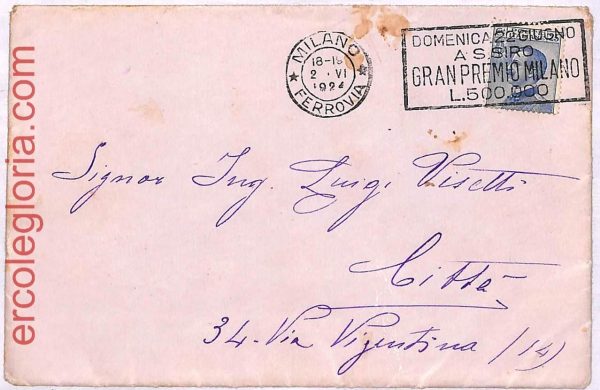 MILANO
18-19
2 · VI
1924
FERROVIA
DOMENICA 22 GIUGNO
A S. SIRO
GRAN PREMIO MILANO
L. 500,000
Signor Ing. Luigi Visetti
Città
34 - Via Vigentina (14)
ercolegloria.com